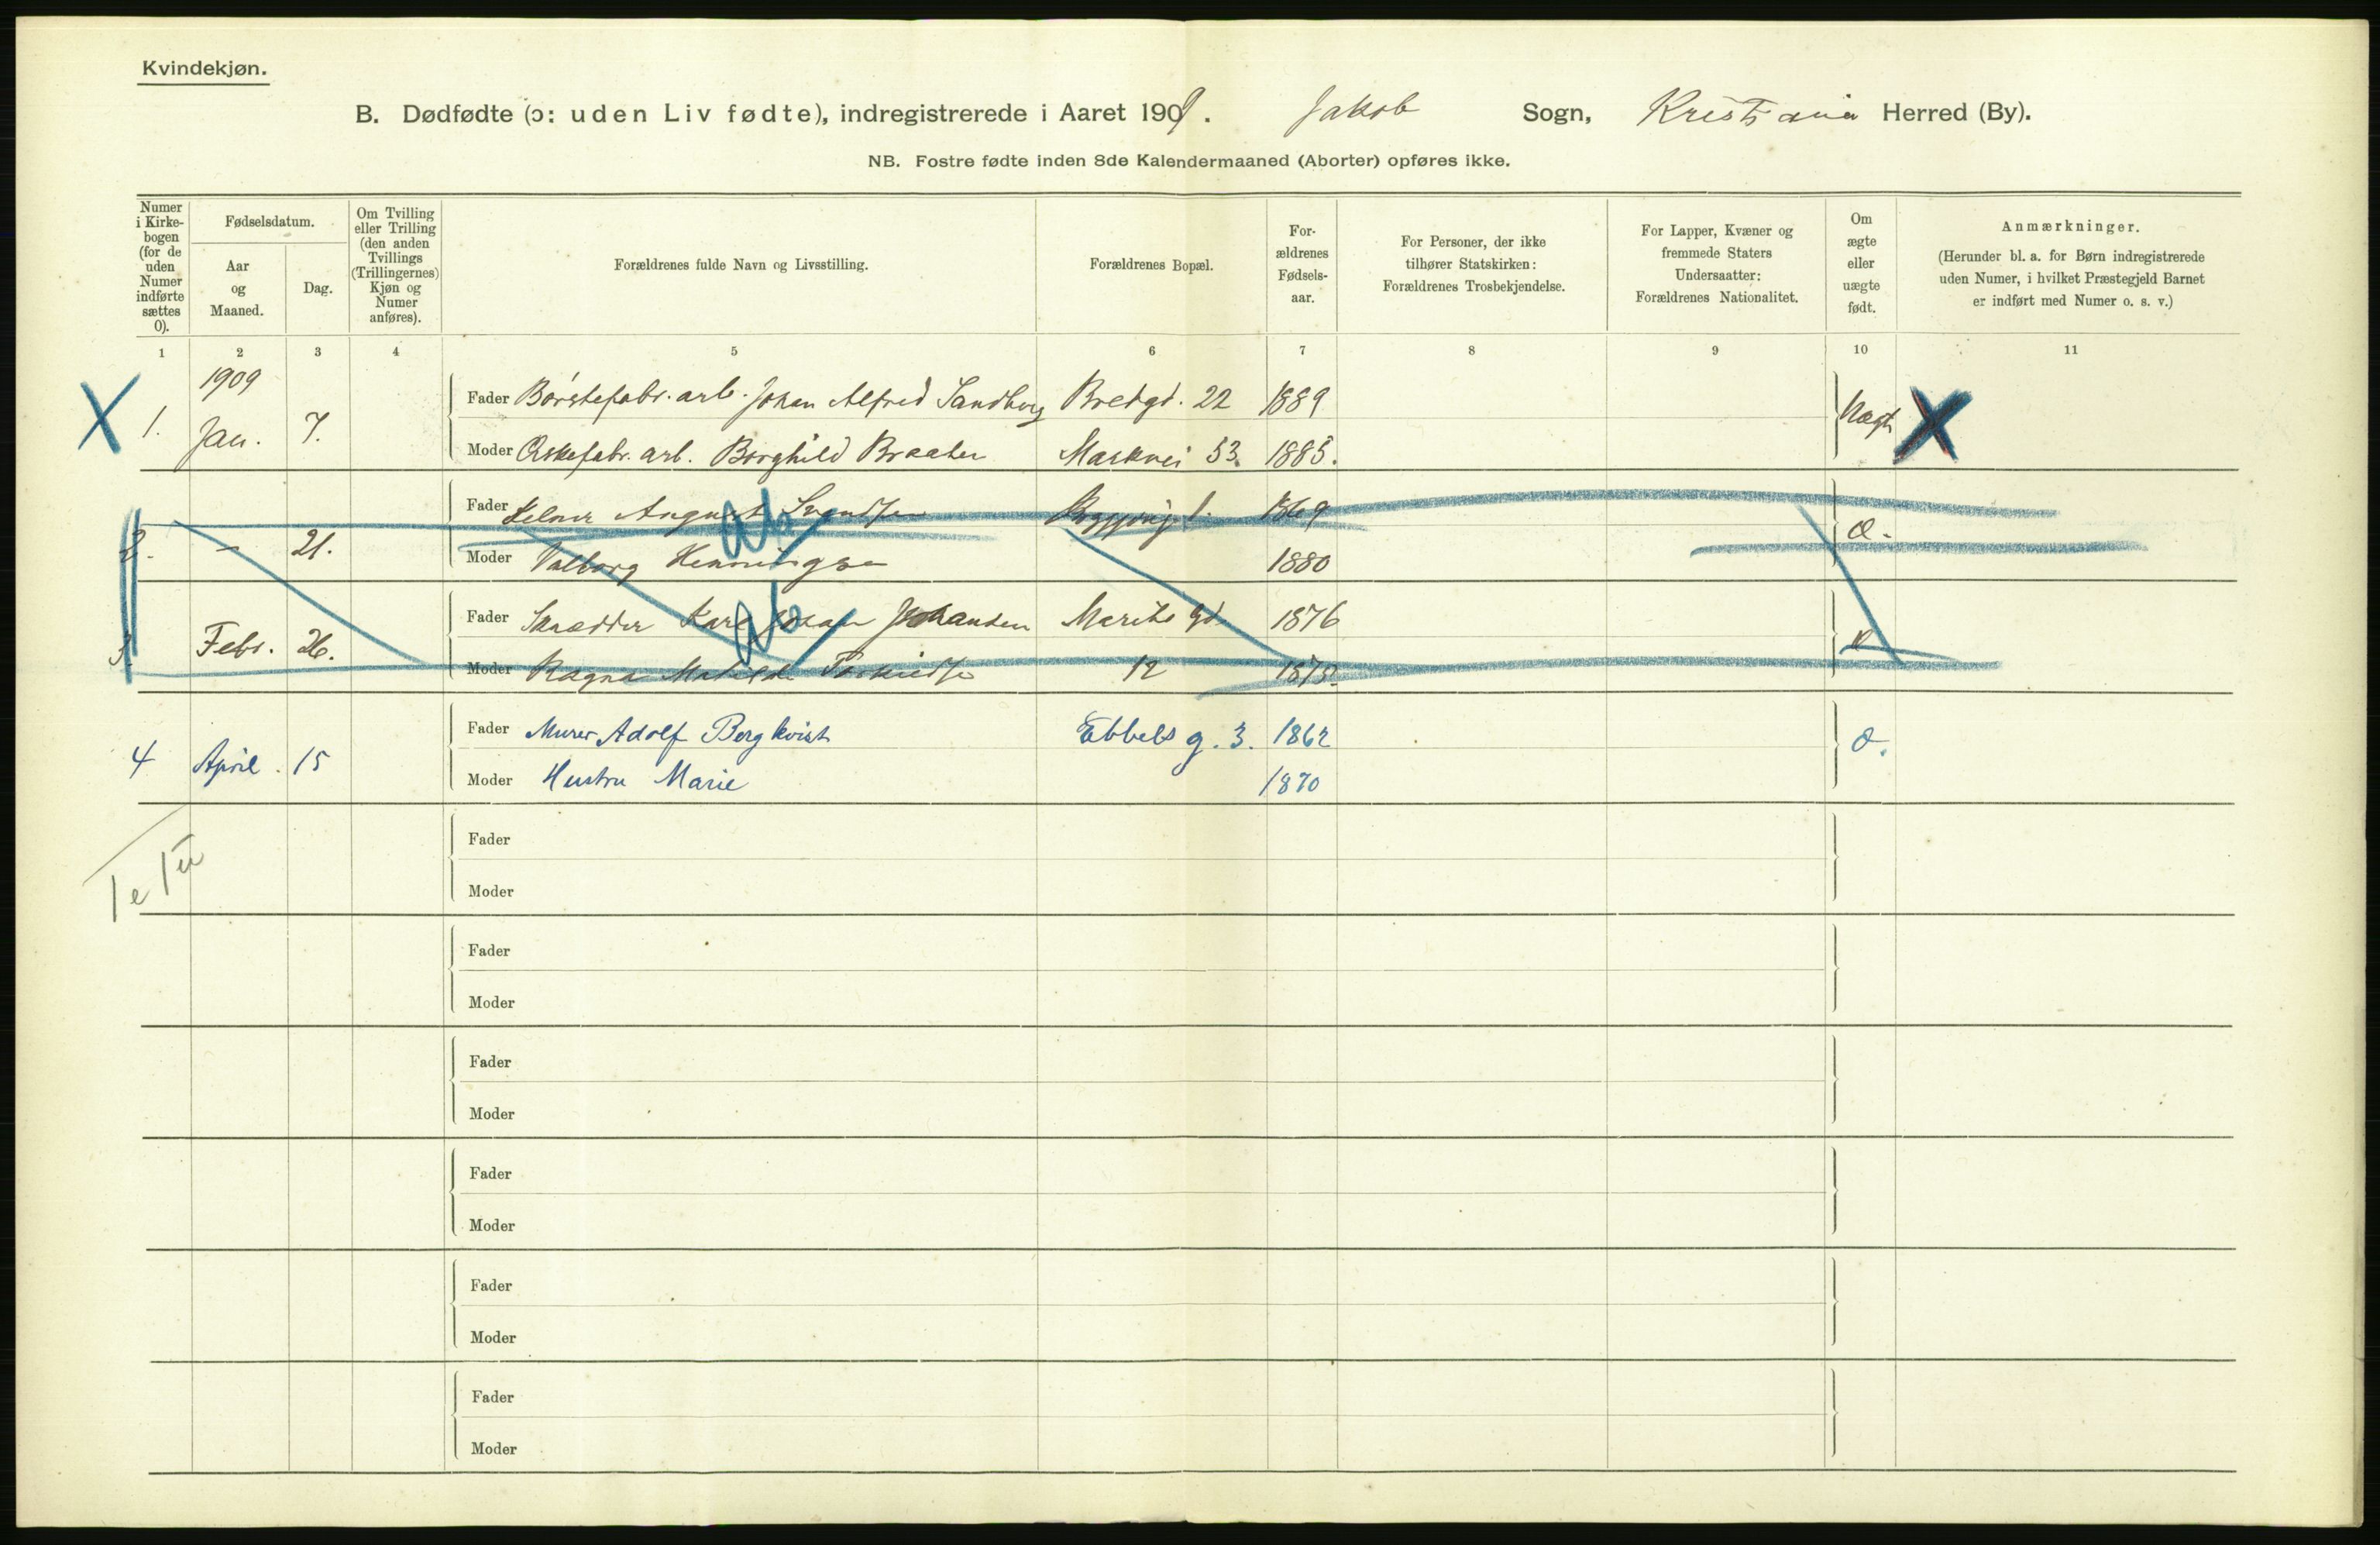 Kvindekjøn.
B. Dødfødte (ɔ: uden Liv fødte), indregistrerede i Aaret 1909. Jakob Sogn, Kristiania Herred (By).
NB. Fostre fødte inden 8de Kalendermaaned (Aborter) opføres ikke.
Numer i Kirke-bogen (for de uden Numer indførte sættes 0).
Fødselsdatum.
Aar og Maaned.
Dag.
Om Tvilling eller Trilling (den anden Tvillings (Trillingernes) Kjøn og Numer anføres).
Forældrenes fulde Navn og Livsstilling.
Forældrenes Bopæl.
For-ældrenes Fødsels-aar.
For Personer, der ikke tilhører Statskirken: Forældrenes Trosbekjendelse.
For Lapper, Kvæner og fremmede Staters Undersaatter: Forældrenes Nationalitet.
Om ægte eller uægte født.
Anmærkninger.
(Herunder bl. a. for Børn indregistrerede uden Numer, i hvilket Præstegjeld Barnet er indført med Numer o. s. v.)
1 2 3 4 5 6 7 8 9 10 11
1909
X Fader Børstefabr. arb. Johan Alfred Sandberg Bredgd. 22 1889
1. Jan. 7. Uægte X
Moder Æskefabr. arb. Borghild Braaten Markvei 53. 1885.
Fader August 1869
2. - 21. Æ.
Moder Valborg Henningsen 1880
Fader Skrædder Karl Johan Johansen Marids gd. 1876
3. Febr. 26. Æ
Moder Ragna Matilde 12 1873.
Fader Murer Adolf Bergkvist Ebbels g. 3. 1862
4 April. 15 Æ.
Moder Hustru Marie 1870
Fader
Moder
Fader
Moder
Fader
Moder
Fader
Moder
Fader
Moder
Fader
Moder